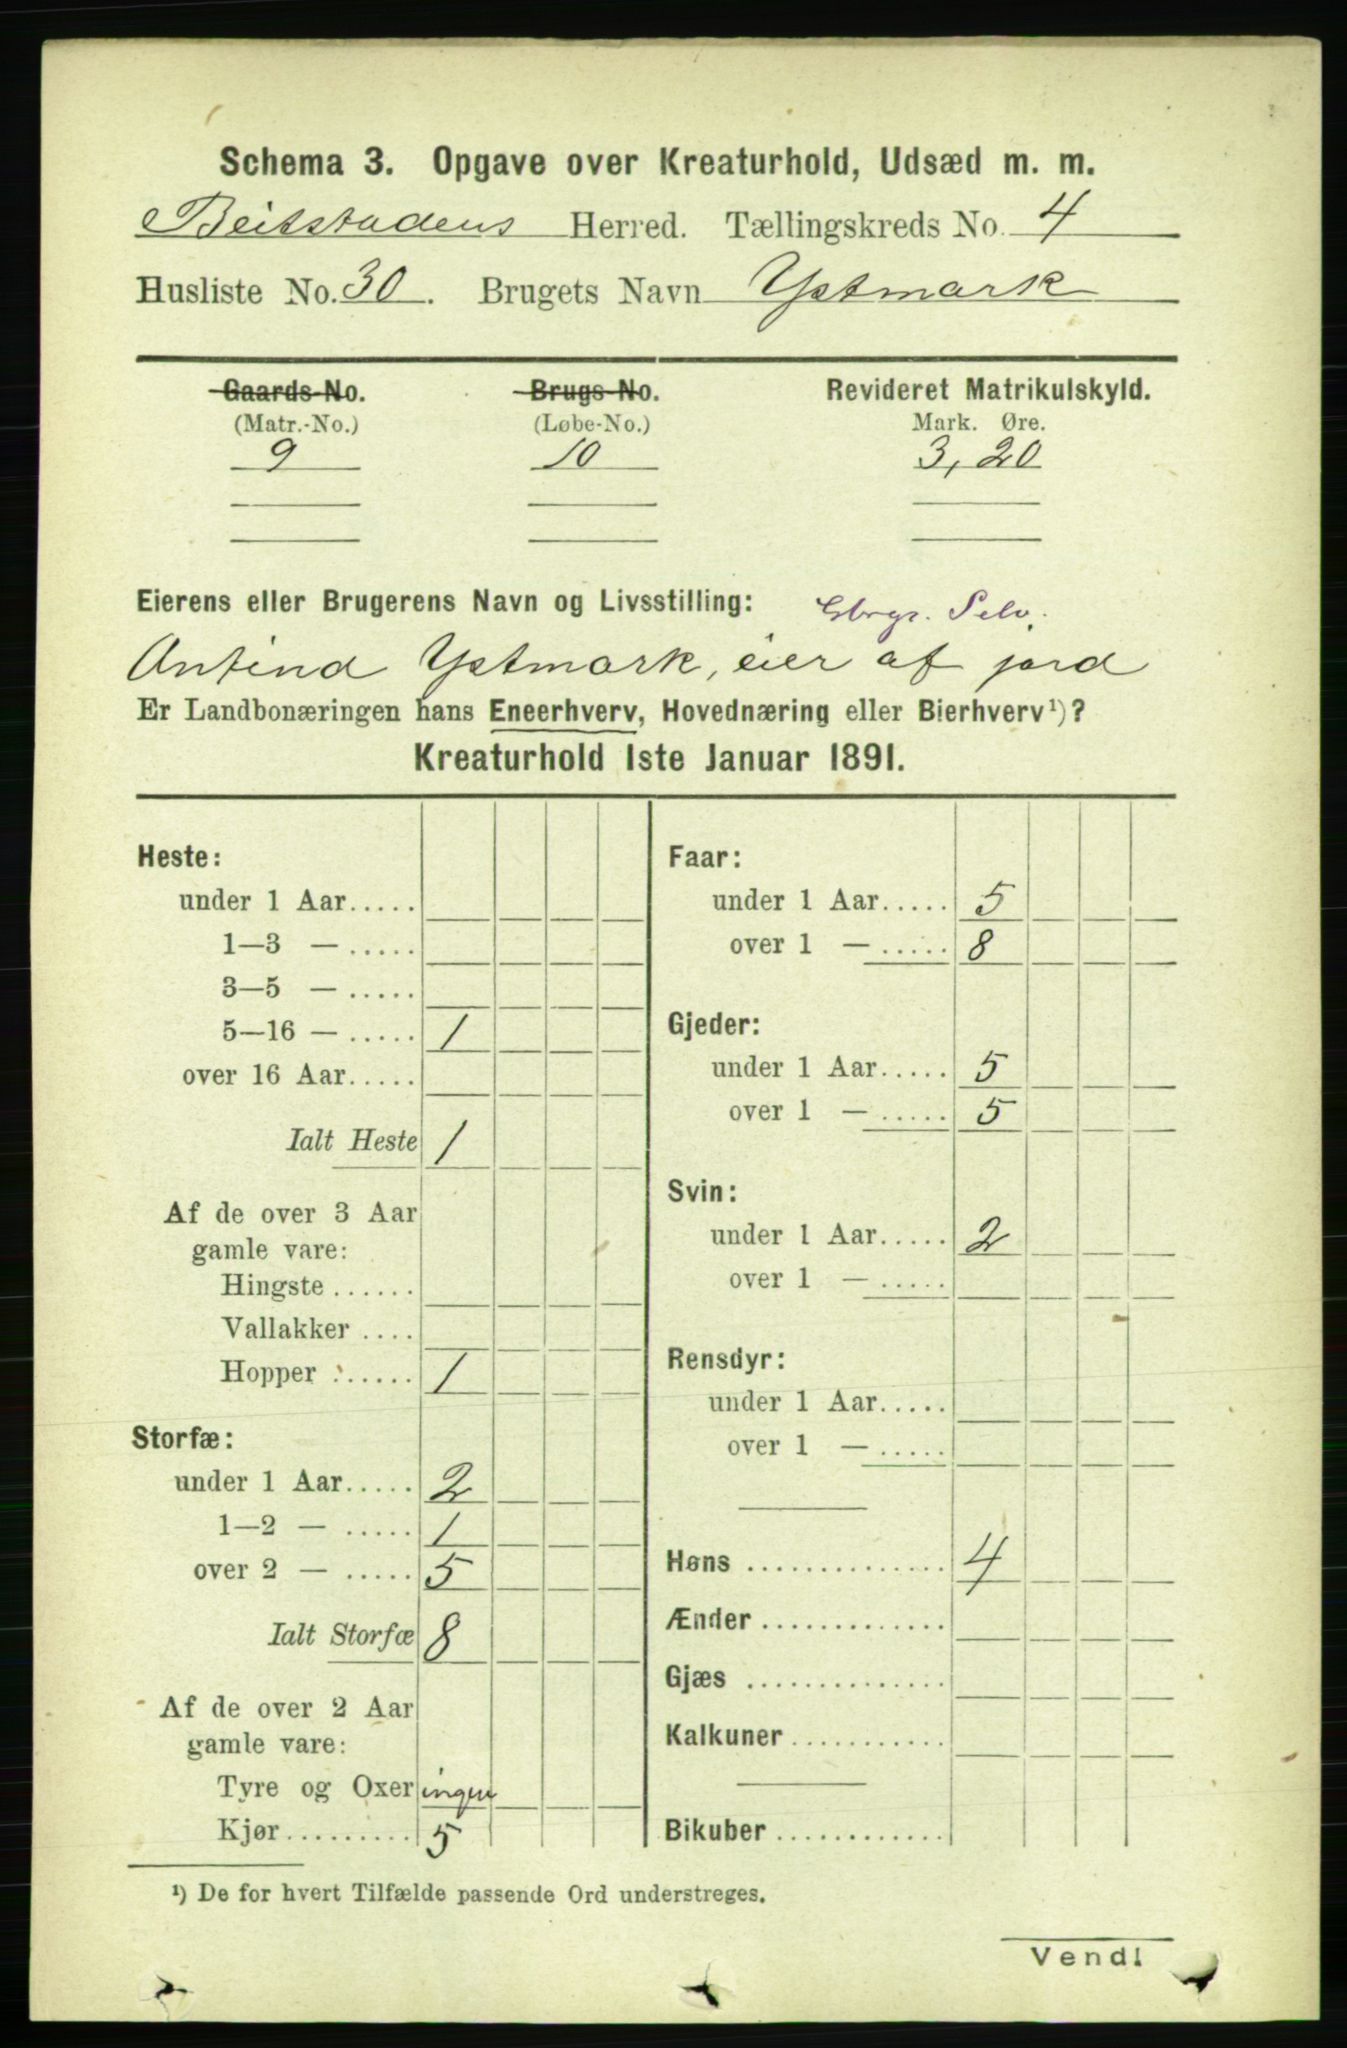 Schema 3. Opgave over Kreaturhold, Udsæd m. m.
Beitstadens Herred. Tællingskreds No. 4
Husliste No. 30. Brugets Navn Ystmark
Gaards-No. Brugs-No. Revideret Matrikulskyld.
(Matr.-No.) (Løbe-No.) Mark. Øre.
9 10 3,20
Eierens eller Brugerens Navn og Livsstilling: Gbrgr. Selv.
Anfind Ystmark, eier af jord
Er Landbonæringen hans Eneerhverv, Hovednæring eller Bierhverv¹)?
Kreaturhold 1ste Januar 1891.
Heste:
under 1 Aar.....
1—3 — .....
3—5 — .....
5—16 — ..... 1
over 16 Aar.....
Ialt Heste 1
Af de over 3 Aar
gamle vare:
Hingste ......
Vallakker ....
Hopper ...... 1
Storfæ:
under 1 Aar..... 2
1—2 — ..... 1
over 2 — ..... 5
Ialt Storfæ 8
Af de over 2 Aar
gamle vare:
Tyre og Oxer ingen
Kjør.......... 5
Faar:
under 1 Aar..... 5
over 1 — ..... 8
Gjeder:
under 1 Aar..... 5
over 1 — ..... 5
Svin:
under 1 Aar..... 2
over 1 — .....
Rensdyr:
under 1 Aar.....
over 1 — .....
Høns .............. 4
Ænder .............
Gjæs ..............
Kalkuner ...........
Bikuber .............
¹) De for hvert Tilfælde passende Ord understreges.
Vend!